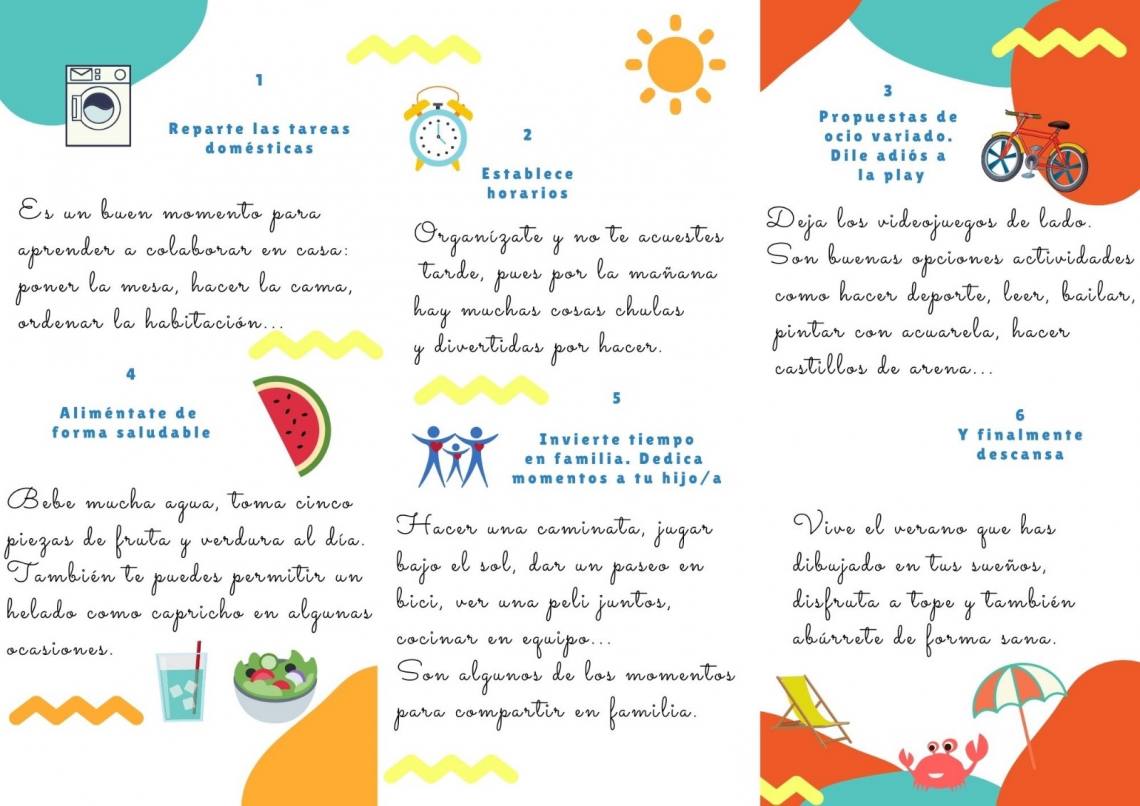 1
Reparte las tareas
domésticas
Es un buen momento para
aprender a colaborar en casa:
poner la mesa, hacer la cama,
ordenar la habitación...
2
Establece
horarios
Organízate y no te acuestes
tarde, pues por la mañana
hay muchas cosas chulas
y divertidas por hacer.
3
Propuestas de
ocio variado.
Dile adiós a
la play
Deja los videojuegos de lado.
Son buenas opciones actividades
como hacer deporte, leer, bailar,
pintar con acuarela, hacer
castillos de arena...
4
Aliméntate de
forma saludable
Bebe mucha agua, toma cinco
piezas de fruta y verdura al día.
También te puedes permitir un
helado como capricho en algunas
ocasiones.
5
Invierte tiempo
en familia. Dedica
momentos a tu hijo/a
Hacer una caminata, jugar
bajo el sol, dar un paseo en
bici, ver una peli juntos,
cocinar en equipo...
Son algunos de los momentos
para compartir en familia.
6
Y finalmente
descansa
Vive el verano que has
dibujado en tus sueños,
disfruta a tope y también
abúrrete de forma sana.